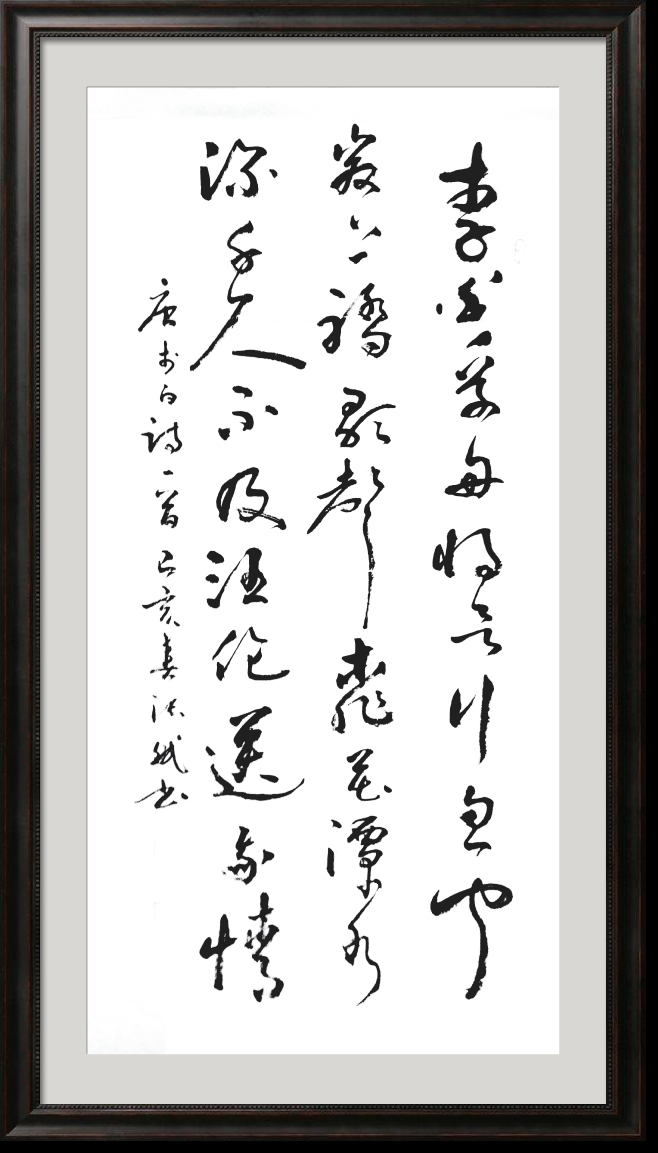 李白乘舟将欲行忽闻
岸上踏歌声桃花潭水
深千尺不及汪伦送我情
唐李白诗一首己亥春书